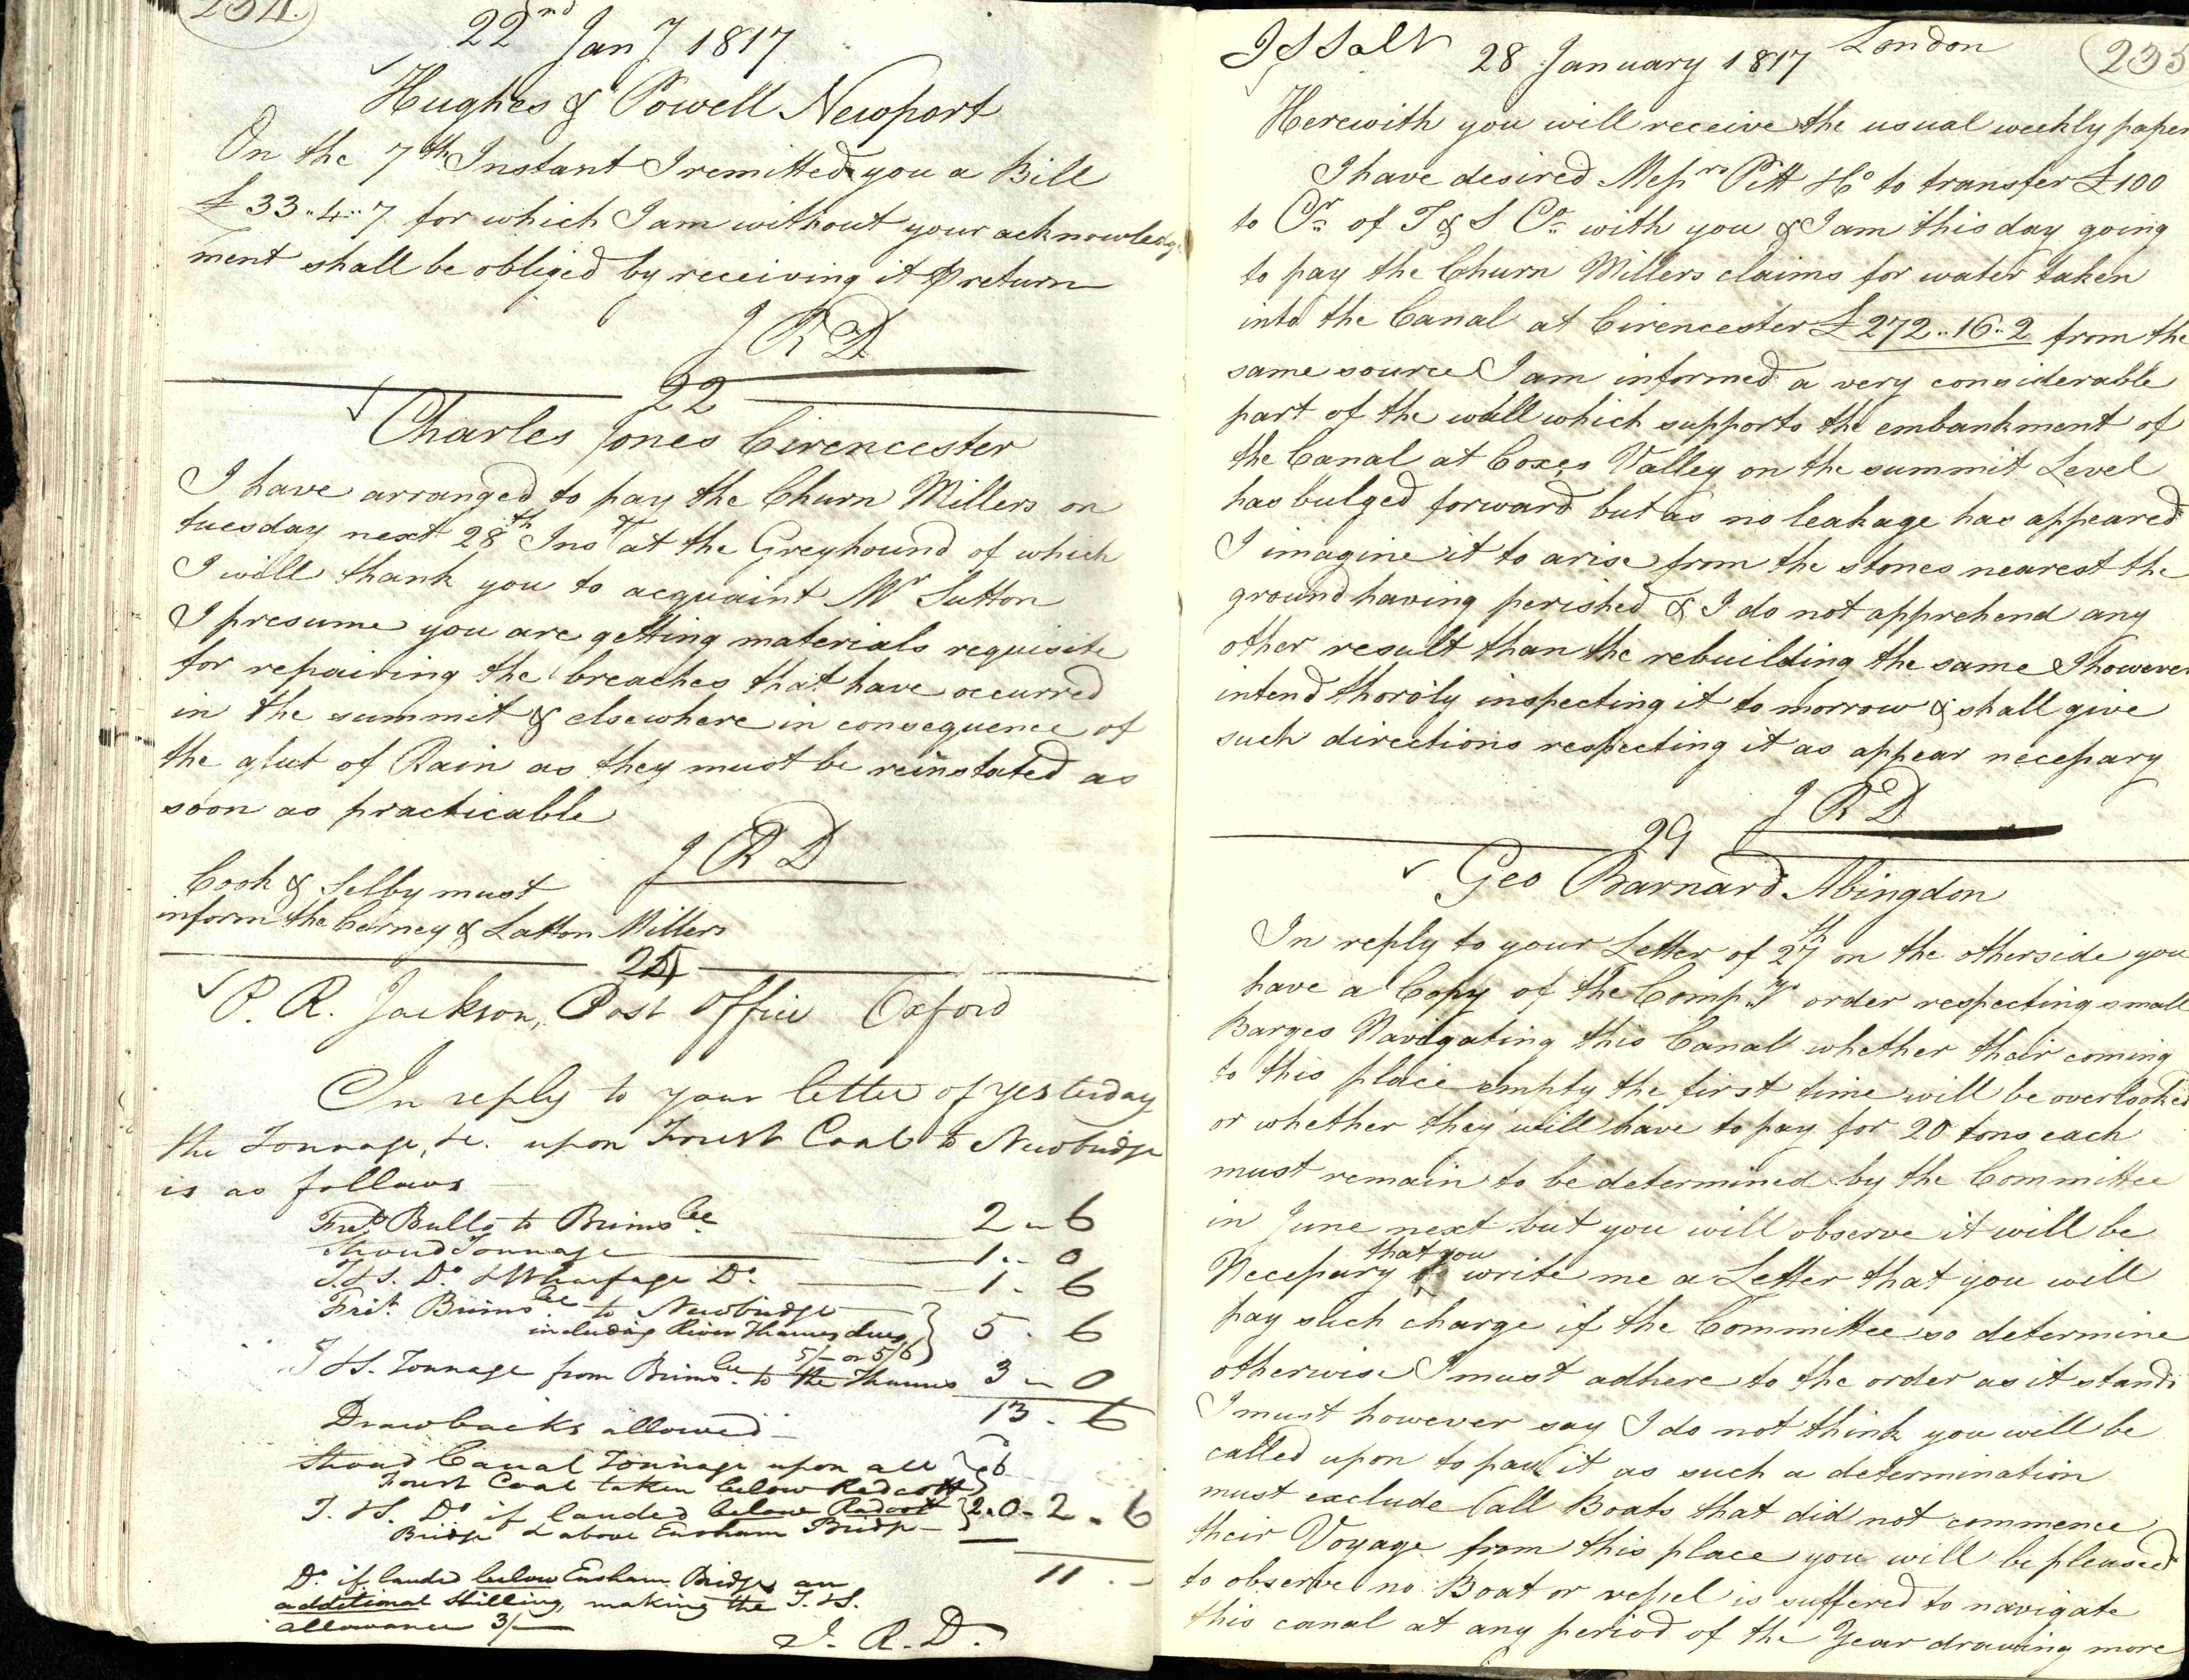 234.
22nd Jany 1817
Hughes & Powell Newport
On the 7th Instant I remitted you a Bill
£33..4..7 for which I am without your acknowledge
ment shall be obliged by receiving it ⅌ return
J R D
22
Charles Jones Cirencester
I have arranged to pay the Churn Millers on
tuesday next 28th Inst at the Greyhound of which
I will thank you to acquaint Mr Sutton
I presume you are getting materials requisite
for repairing the breaches that have occurred
in the summit & elsewhere in consequence of
the glut of Rain as they must be reinstated as
soon as practicable
J R D
Cook & Selby must
inform the Cerney & Latton Millers
25
P. R. Jackson, Post Office Oxford
In reply to your letter of yesterday
the Tonnage, &c. upon Forest Coal to Newbridge
is as follows
Frt. Bullo to Brimsce 2 - 6
Stroud Tonnage 1 - 0
T. & S. Do. & Wharfage Do. 1 - 6
Frit. Brimsce to Newbridge
including River Thames dues 5 - 6
5/- or 5/6
T & S. Tonnage from Brimsce. to the Thames 3 - 0
13 - 6
Drawbacks allowed -
Stroud Canal Tonnage upon all 6
Forest Coal taken below Radcott
T. & S. Do if landed below Radcott 2.0 - 2 - 6
Bridge & above Ensham Bridge
11 . -
Do. if landed below Ensham Bridge an
additional Shilling, making the T. & S.
allowance 3/-
J. R. D.
J S Salt London
28 January 1817
235
Herewith you will receive the usual weekly paper
I have desired Messrs Pitt & Co to transfer £100
to Cr. of T & S Co. with you & I am this day going
to pay the Churn Millers claims for water taken
into the Canal at Cirencester £272..16..2 from the
same source I am informed a very considerable
part of the wall which supports the embankment of
the Canal at Coxes Valley on the summit Level
has bulged forward but as no leakage has appeared
I imagine it to arise from the stones nearest the
ground having perished & I do not apprehend any
other result than the rebuilding the same I however
intend thoroly inspecting it to morrow & shall give
such directions respecting it as appear necessary
J R D
29
Geo Barnard Abingdon
In reply to your Letter of 27th on the otherside you
have a Copy of the Compys order respecting small
Barges Navigating this Canal whether their coming
to this place empty the first time will be overlooked
or whether they will have to pay for 20 tons each
must remain to be determined by the Committee
in June next but you will observe it will be
that you
Necessary write me a Letter that you will
pay such charge if the Committee so determine
otherwise I must adhere to the order as it stands
I must however say I do not think you will be
called upon to pay it as such a determination
must exclude all Boats that did not commence
their Voyage from this place you will be pleased
to observe no Boat or vessel is suffered to navigate
this canal at any period of the Year drawing more